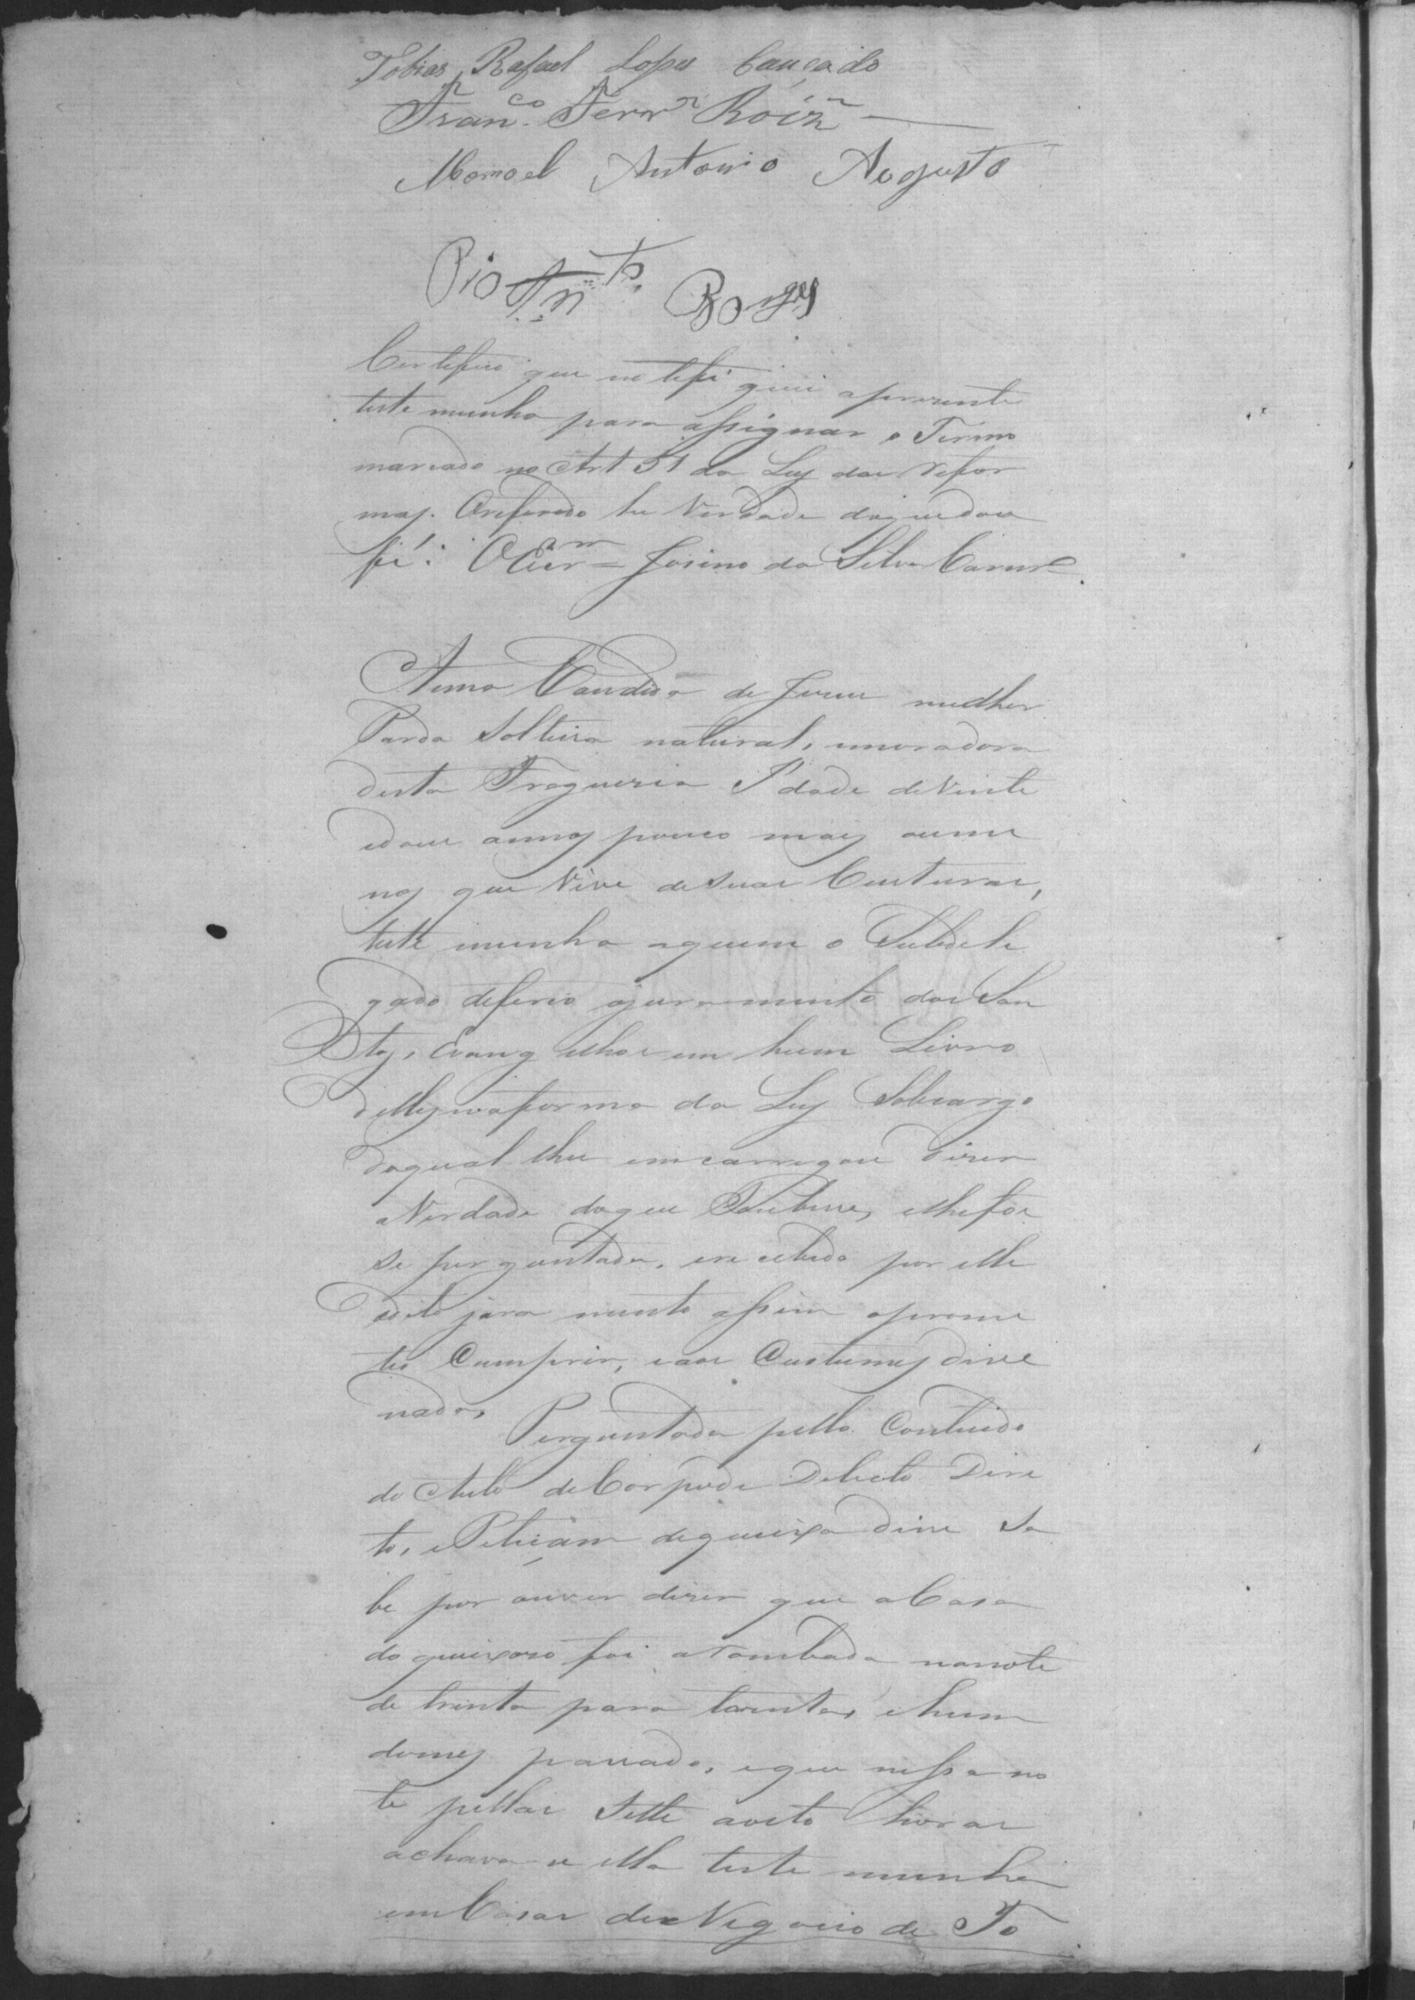 Tobias Rafael Lopes Cançado
Fran.co Ferr.a Roiz
Manoel Antonio Augusto
Pio Borges
Certefico que notefi quei apresente
teste munha para assignar o Termo
marcado no Art 51 da Ley das refor
mas. Oreferido he Verdade doquedou
fé. OEscr.m Josino da Silva
Anna Candida de Jesus mulher
Parda Solteira natural, emoradora
desta Freguezia Idade deVinte
edous annos pouco mais oume
nos que Vive desuas Custuras,
teste munha aquem o Subdele
gado deferio ojura mento dos San
tos, Evang elhos em hum Livro
delles naforma da Ley Sobcargo
doqual lhe emcarregou dizer
aVerdade doque Soubece, elhefos
se perguntada, erecebido por ella
odito jura mento assim aprome
teo Cumprir, eaos Custumes dice
nada,
Perguntada pello Contheudo
do Auto deCorpode Delicto Dire
to, ePetiçam dequeixa dice Sa
be por ouvir dizer que aCasa
do queixoso foi arombada nanote
de trinta para trinta, ehum
domes passado, eque nessa no
te pellas Sette aoito horas
achava se ella teste munha
emCasas deNegocio de To